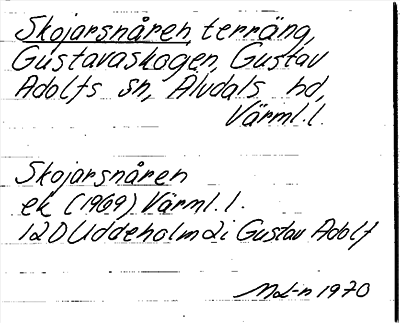 Skojarsnåren, terräng,
Gustavaskogen, Gustav
Adolfs sn, Älvdals hd,
Värml. l.
Skojarsnåren
ek (1969) Värml. l.
12D Uddeholm 2i Gustav Adolf
1970